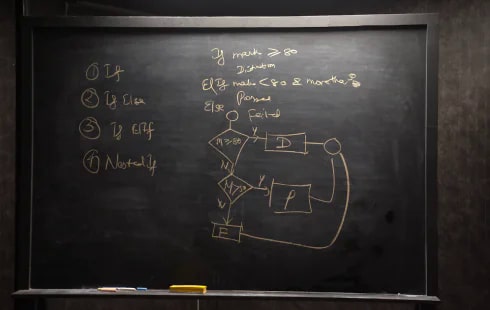 ① If
② If Else
③ If ElIf
④ Nested If
If mark ≥ 80
Distinction
ElIf mark < 80 & more than
Passed
Else
Failed
M ≥ 80
Y
D
N
M >
Y
P
N
F